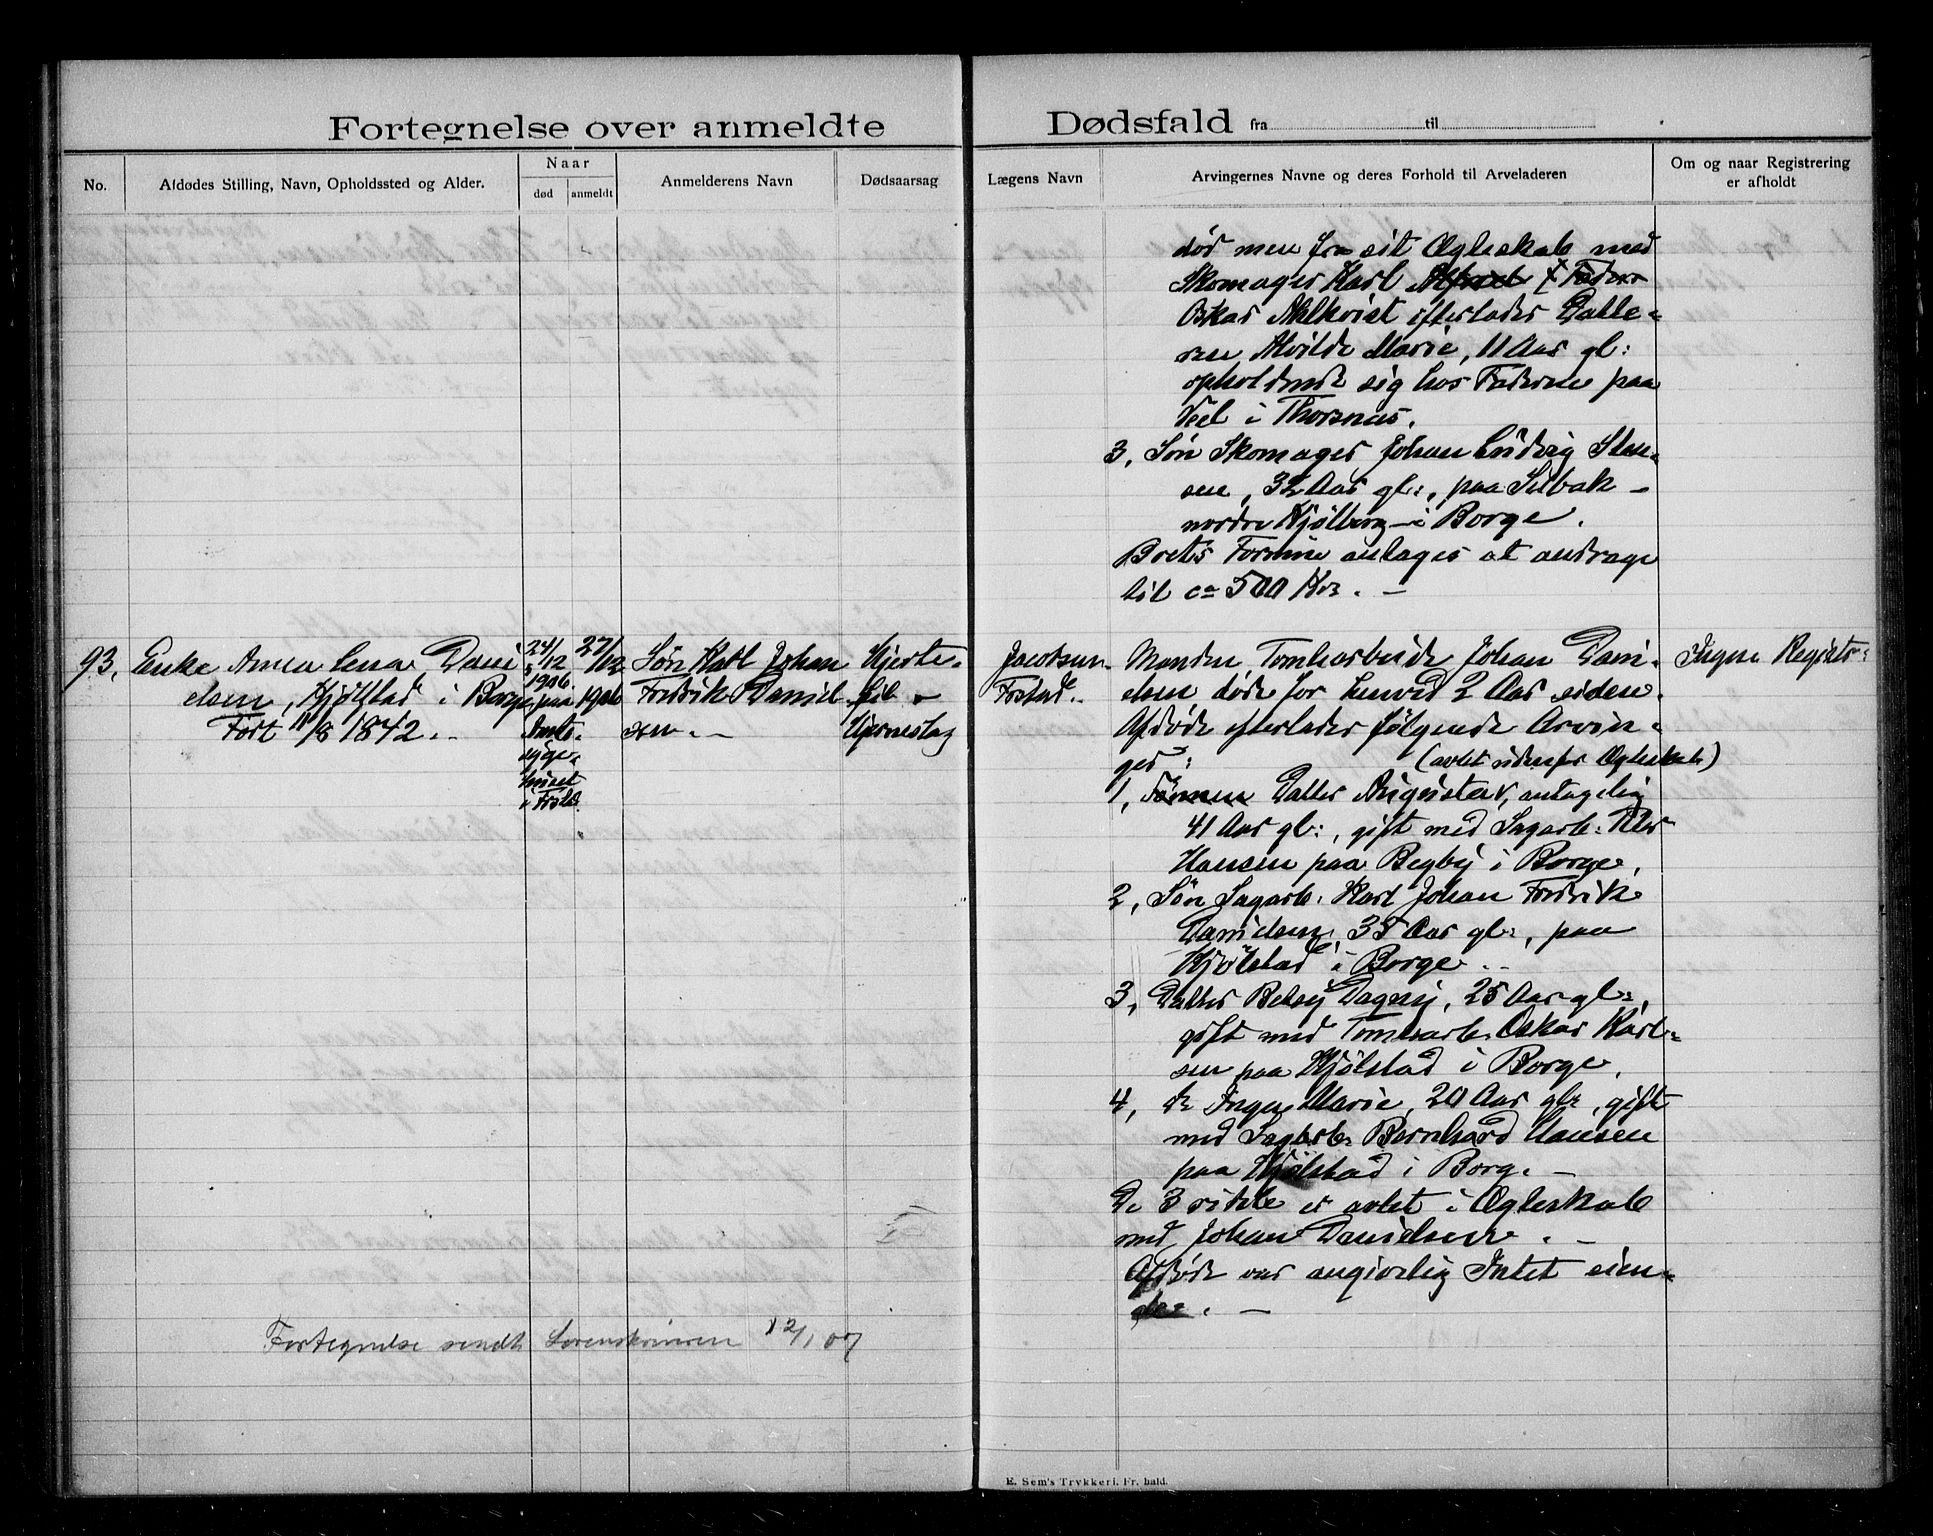 Fortegnelse over anmeldte Dødsfald fra til
No.
Afdødes Stilling, Navn, Opholdssted og Alder.
Naar
død
anmeldt
Anmelderens Navn
Dødsaarsag
Lægens Navn
Arvingernes Navne og deres Forhold til Arveladeren
Om og naar Registrering
er afholdt
død men fra sit Ægteskab med
Skomager Karl Alfred
Oskar Ahlkvist efterlader Datte-
ren Alvilde Marie, 11 Aar gl:
opholdende sig hos Faderen paa
Veel i Thorsnæs.
3, Søn Skomager Johan Ludvig Sten-
sen, 32 Aar gl:, paa Selbak -
nordre Kjølberg - i Borge.
Boets Formue antages at andrage
til ca 500 Kr. -
93, Enke Anna Lena Dani
elsen, Kjølstad i Borge,
Født 11/8 1842. -
24/12
1906
paa
Amts-
syge-
huset
i Frstd.
27/12
1906
Søn Karl Johan
Fredrik Daniel
sen. -
Hjerte-
feil -
Hjerneslag
Jacobsen
Frstad. -
Manden Tomtearbeider Johan Dani-
elsen døde for henved 2 Aar siden.
Afdøde efterlader følgende Arvin-
ger: (avlet udenfor Ægteskab)
1, Datter Augusta, antagelig
41 Aar gl:, gift med Sagarb: Peder
Hansen paa Begby i Borge,
2, Søn Sagarb. Karl Johan Fredrik
Danielsen, 35 Aar gl:, paa
Kjølstad i Borge. -
3, Datter Betsy Dagny, 25 Aar gl:,
gift med Tomtearb. Oskar Karl-
sen paa Kjølstad i Borge,
4, do Inga Marie, 20 Aar gl:, gift
med Sagarb: Bernhard Hansen
paa Kjølstad i Borge. -
De 3 sidste er avlet i Ægteskab
med Johan Danielsen. -
Afdøde var angivelig Intet eien-
de. -
Ingen Registr:
Fortegnelse sendt Sorenskriveren 12/1 07
E. Sem's Trykkeri, Fr.hald.